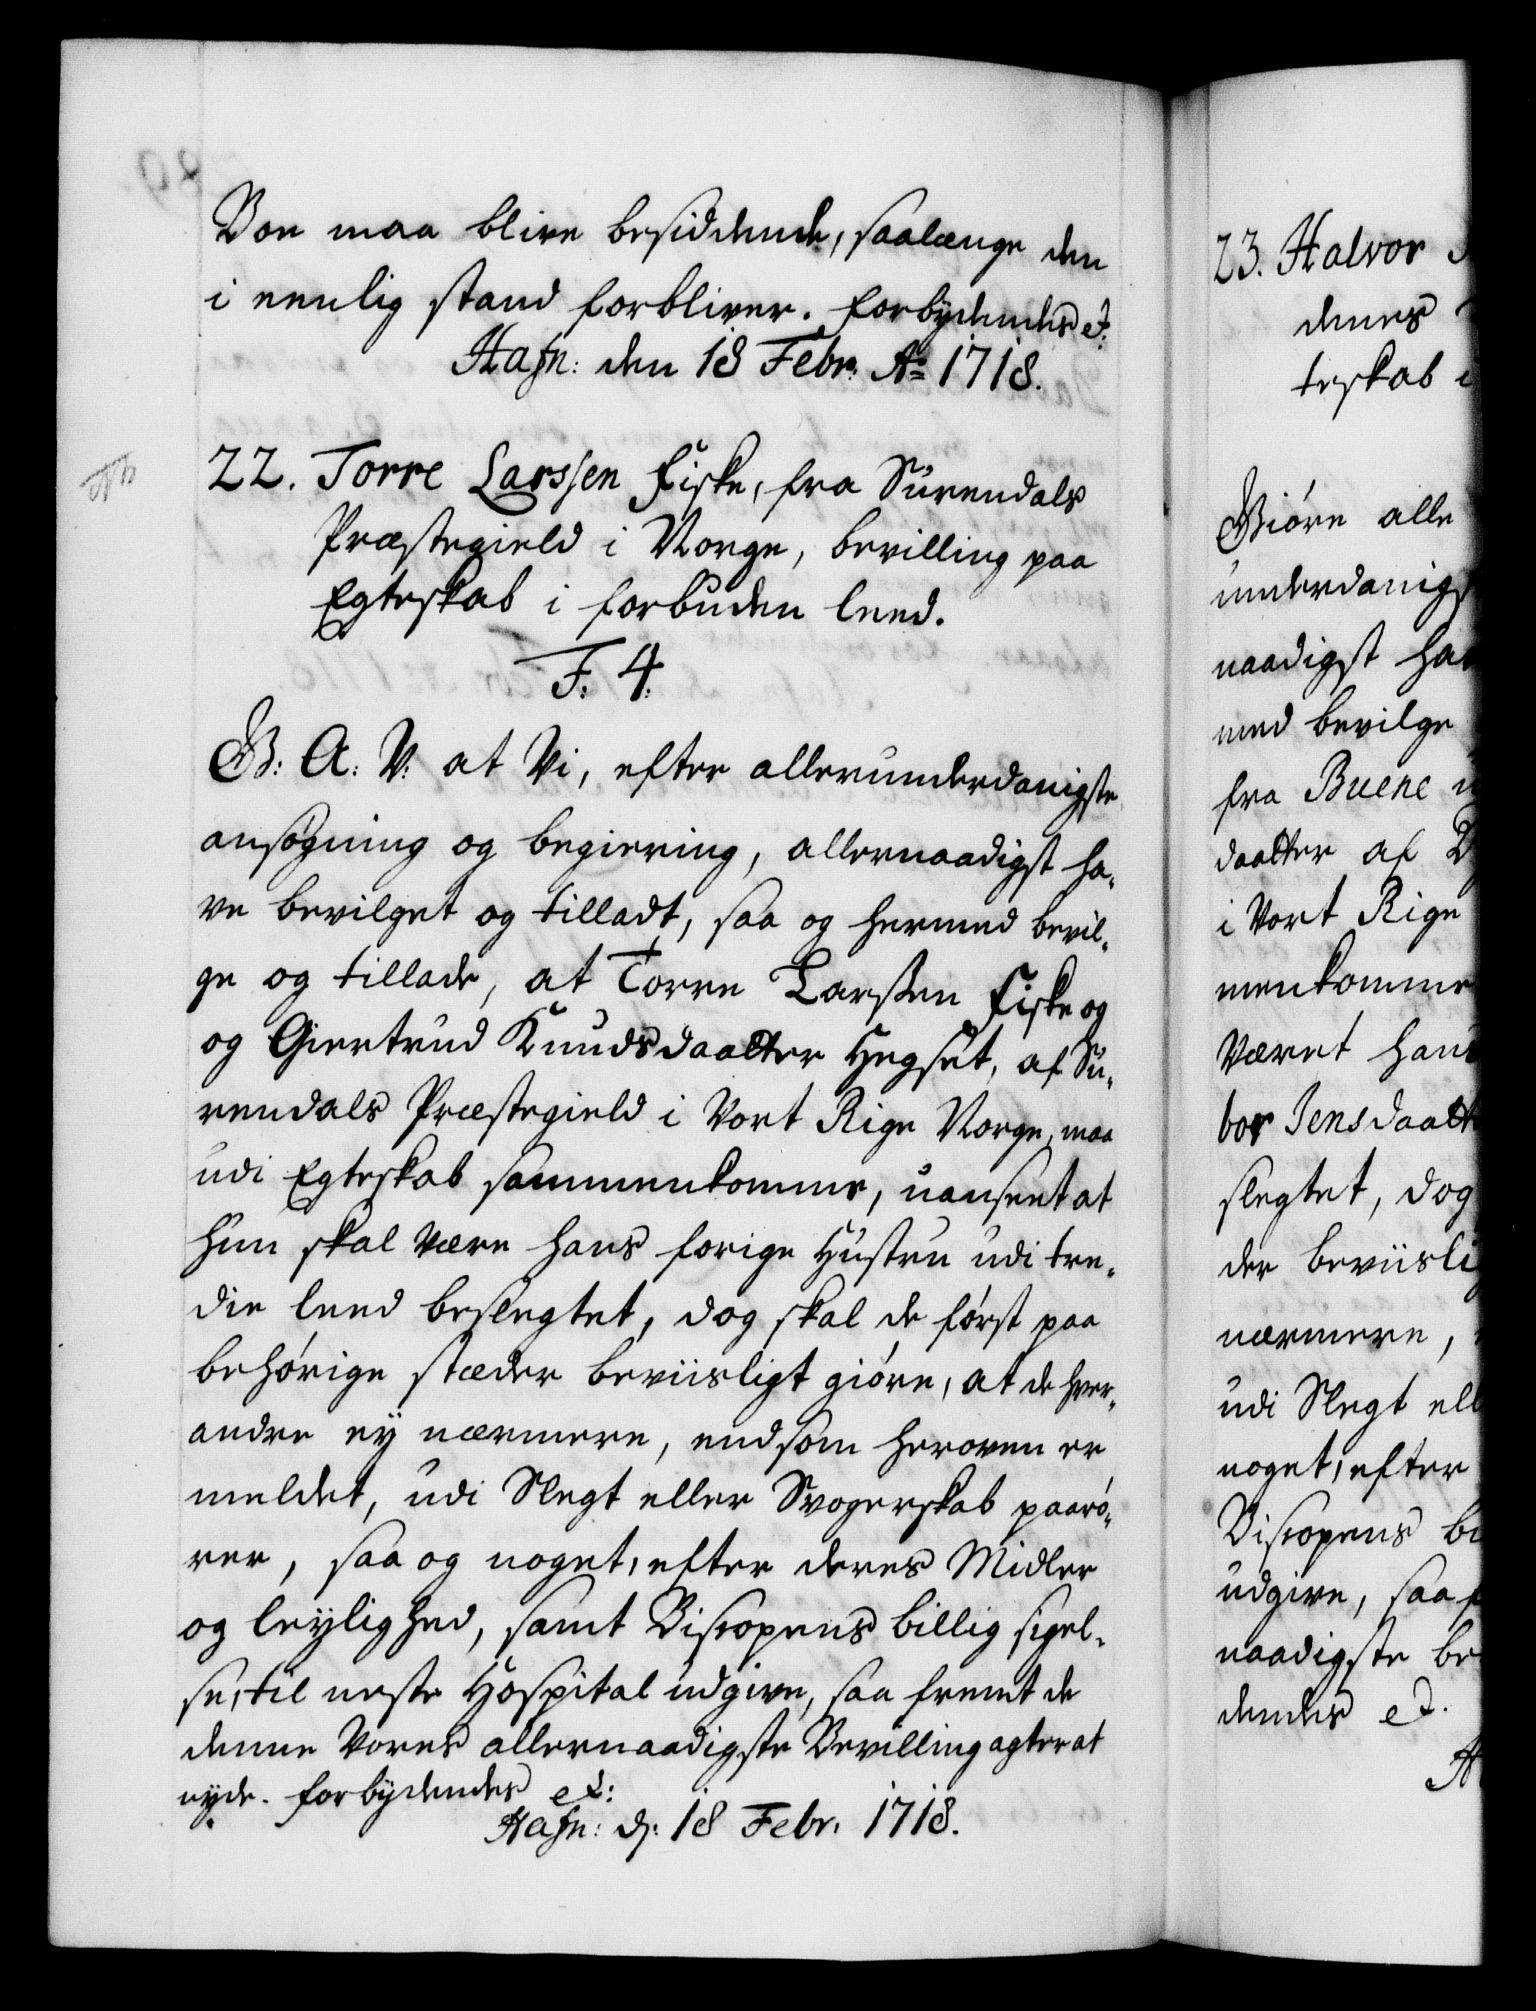 Boe maa blive besiddende, saalænge den
i eenlig stand forbliver. forbydendes et:
Hafn: den 18 Febr: Ao 1718.
22. Torre Larssen Fiske, fra Surendals
Præstegield i Norge, bevilling paa
Egteskab i forbuden leed.
F. 4.
G: A: V: at Vi, efter allerunderdanigste
ansøgning og begiering, allernaadigst ha-
ve bevilget og tilladt, saa og hermed bevil-
ge og tillade, at Torre Larssen Fiske og
og Giertrud Knudsdaatter Hegset, af Su-
rendals Præstegield i Vort Rige Norge, maa
udi Egteskab sammenkomme, uanseet at
hun skal være hans forige Hustru udi tre-
die leed beslegtet, dog skal de først paa
behørige stæder beviisligt giøre, at de hver-
andre ey nærmere, end som heroven er
meldet, udi Slegt eller Svogerskab paarø-
rer, saa og noget, efter deres Midler
og leylighed, samt Biscopens billig sigel-
se, til neste Hospital udgive, saa fremt de
denne Vores allernaadigste Bevilling agter at
nyde. forbydendes et:
Hafn: d: 18 Febr. 1718.
23. Halvor
denes
teskab i
Giøre alle
underdanigs
naadigst ha
med bevilge
fra Buene
daatter af
i Vort Rige
menkomme
Været hans
bor Jensdaatt
slegtet, dog
der beviisli
nærmere,
udi Slegt ell
noget, efter
Biscopens bi
udgive, saa f
naadigste be
dendes et.